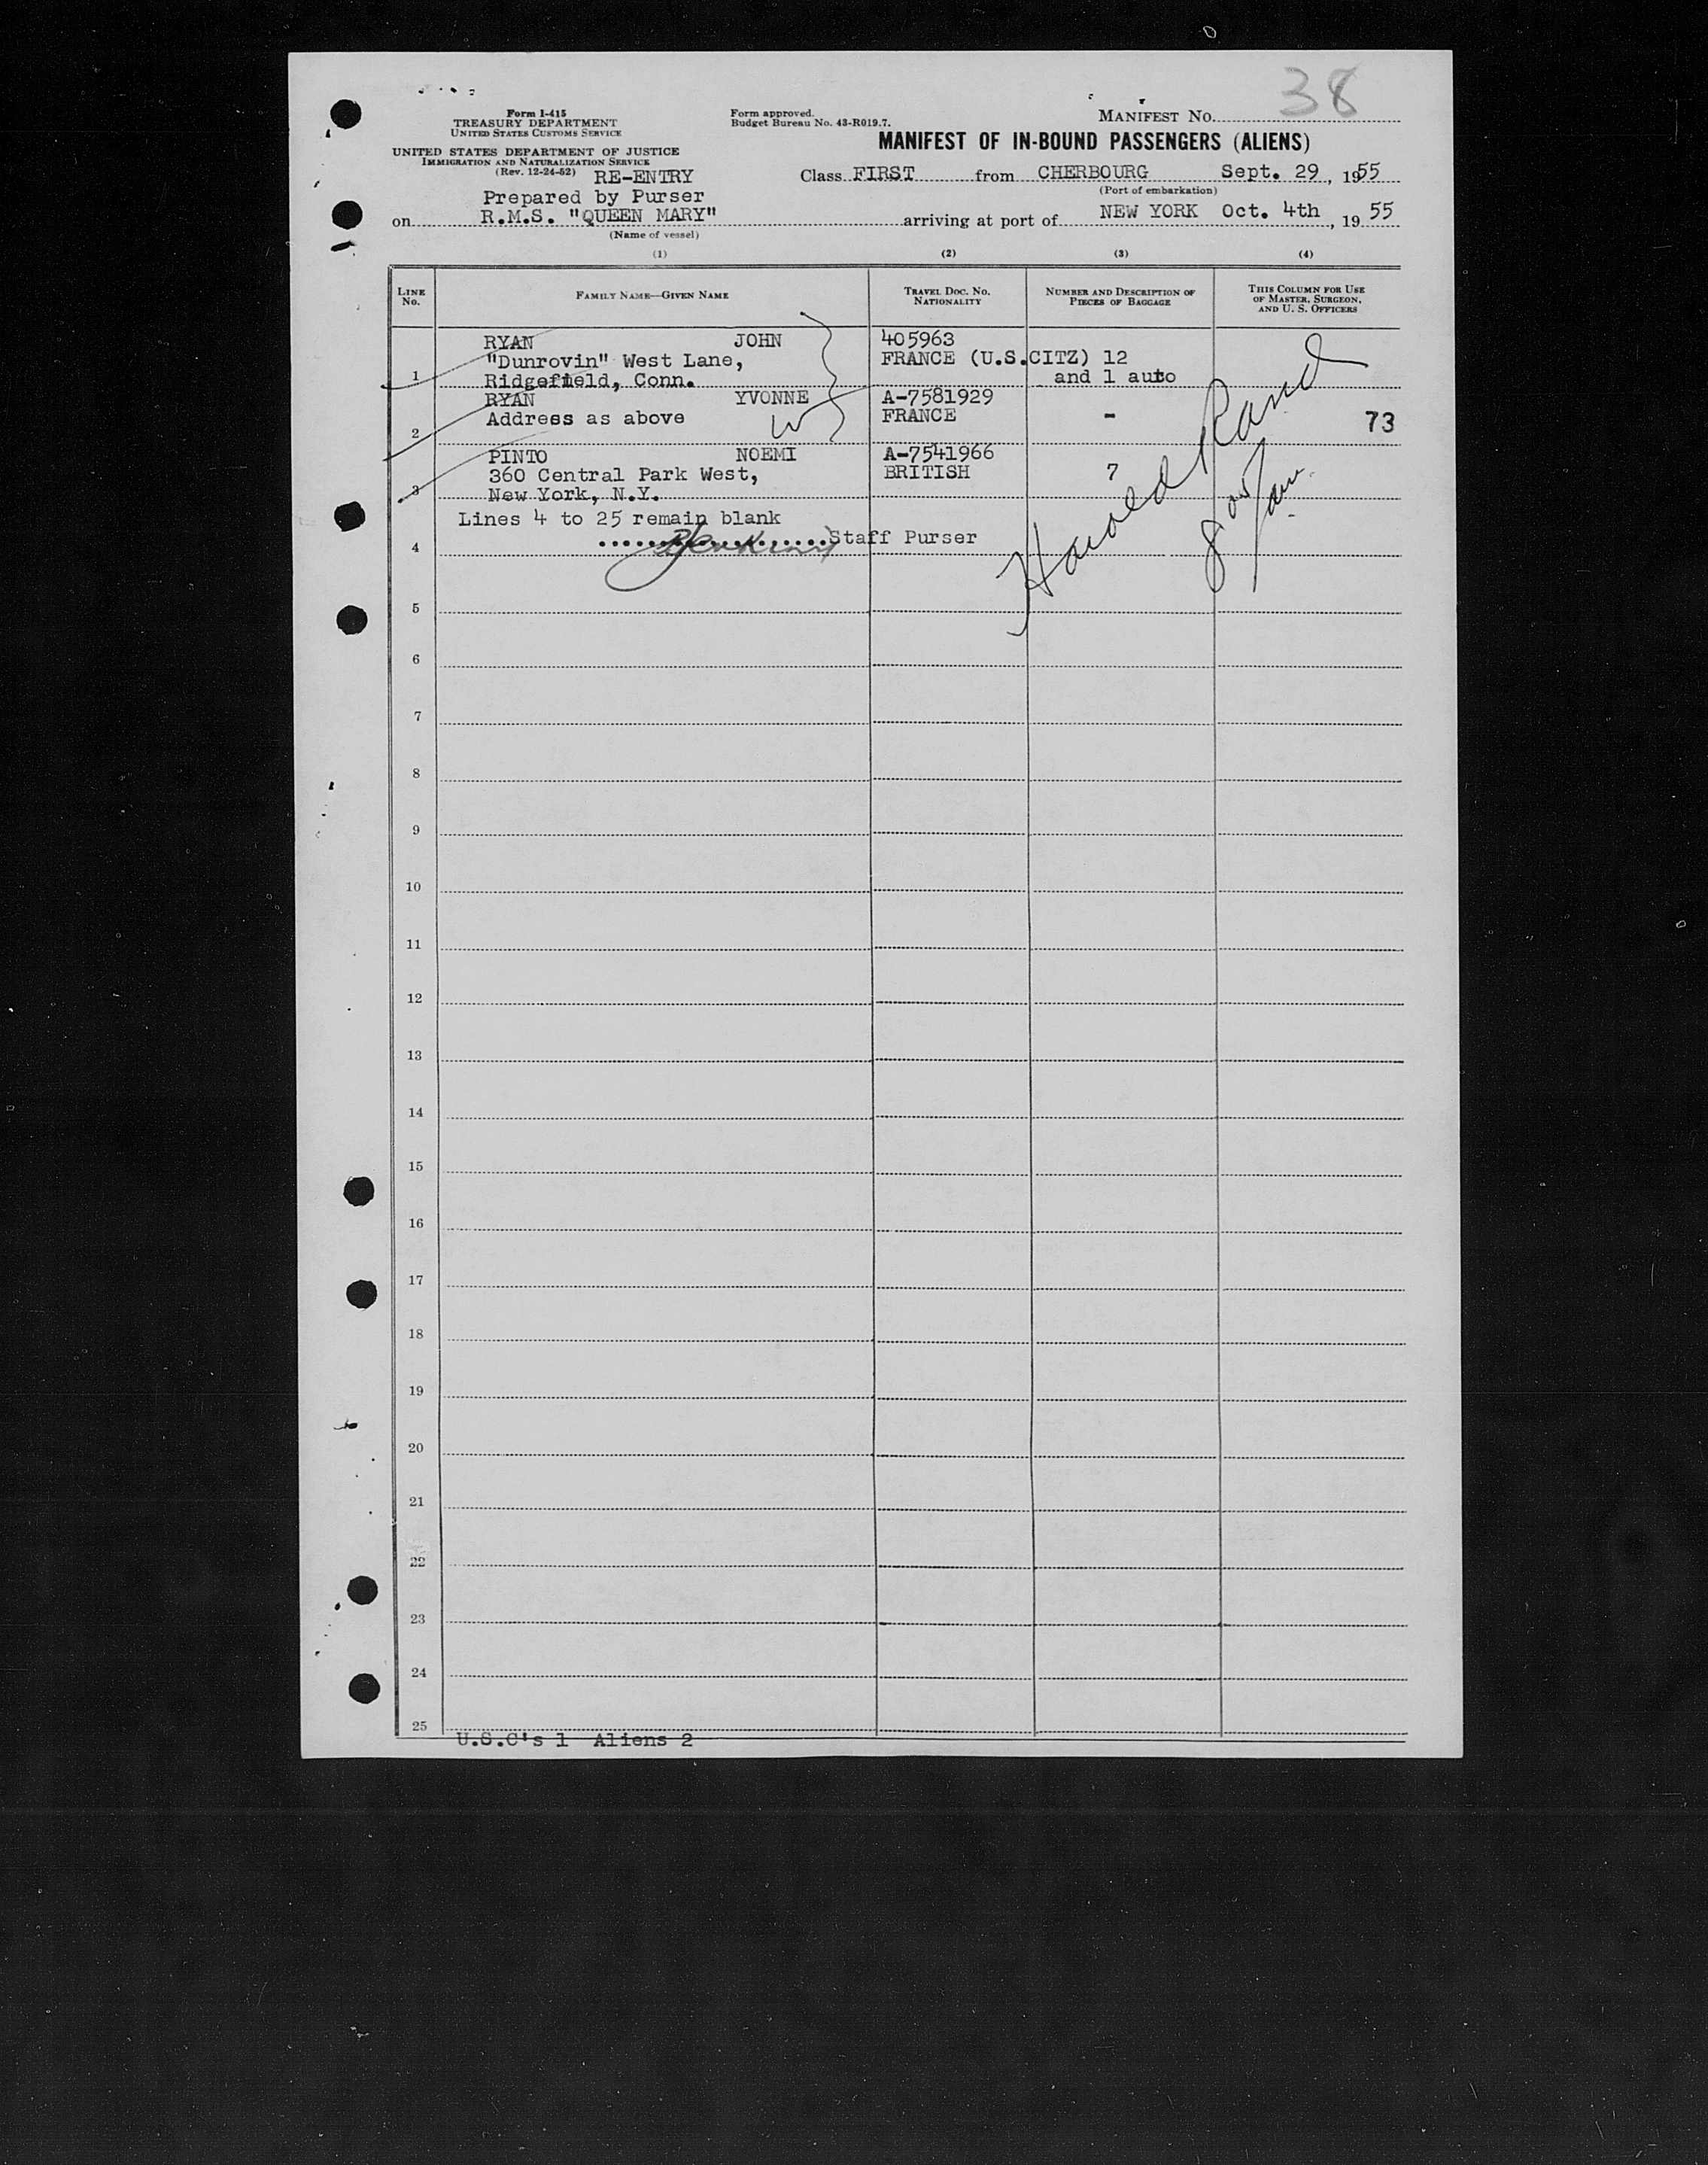 38
Form I-415
TREASURY DEPARTMENT
UNITED STATES CUSTOMS SERVICE
UNITED STATES DEPARTMENT OF JUSTICE
IMMIGRATION AND NATURALIZATION SERVICE
(Rev. 12-24-52) RE-ENTRY
Form approved.
Budget Bureau No. 43-R019.7.
MANIFEST NO.
MANIFEST OF IN-BOUND PASSENGERS (ALIENS)
Class FIRST from CHERBOURG Sept. 29, 1955
(Port of embarkation)
Prepared by Purser
on R.M.S. "QUEEN MARY" arriving at port of NEW YORK Oct. 4th, 1955
(Name of vessel)
(1) (2) (3) (4)
LINE No. FAMILY NAME—GIVEN NAME TRAVEL DOC. NO. NATIONALITY NUMBER AND DESCRIPTION OF PIECES OF BAGGAGE THIS COLUMN FOR USE OF MASTER, SURGEON, AND U. S. OFFICERS
RYAN JOHN 405963
"Dunrovin" West Lane, FRANCE (U.S.CITZ) 12
1 Ridgefield, Conn. and 1 auto
RYAN YVONNE A-7581929
Address as above FRANCE - 73
2
PINTO NOEMI A-7541966
360 Central Park West, BRITISH 7
3 New York, N.Y.
Harold Rand
Lines 4 to 25 remain blank
Staff Purser
4
5
6
7
8
9
10
11
12
13
14
15
16
17
18
19
20
21
22
23
24
25
U.S.C's 1 Aliens 2